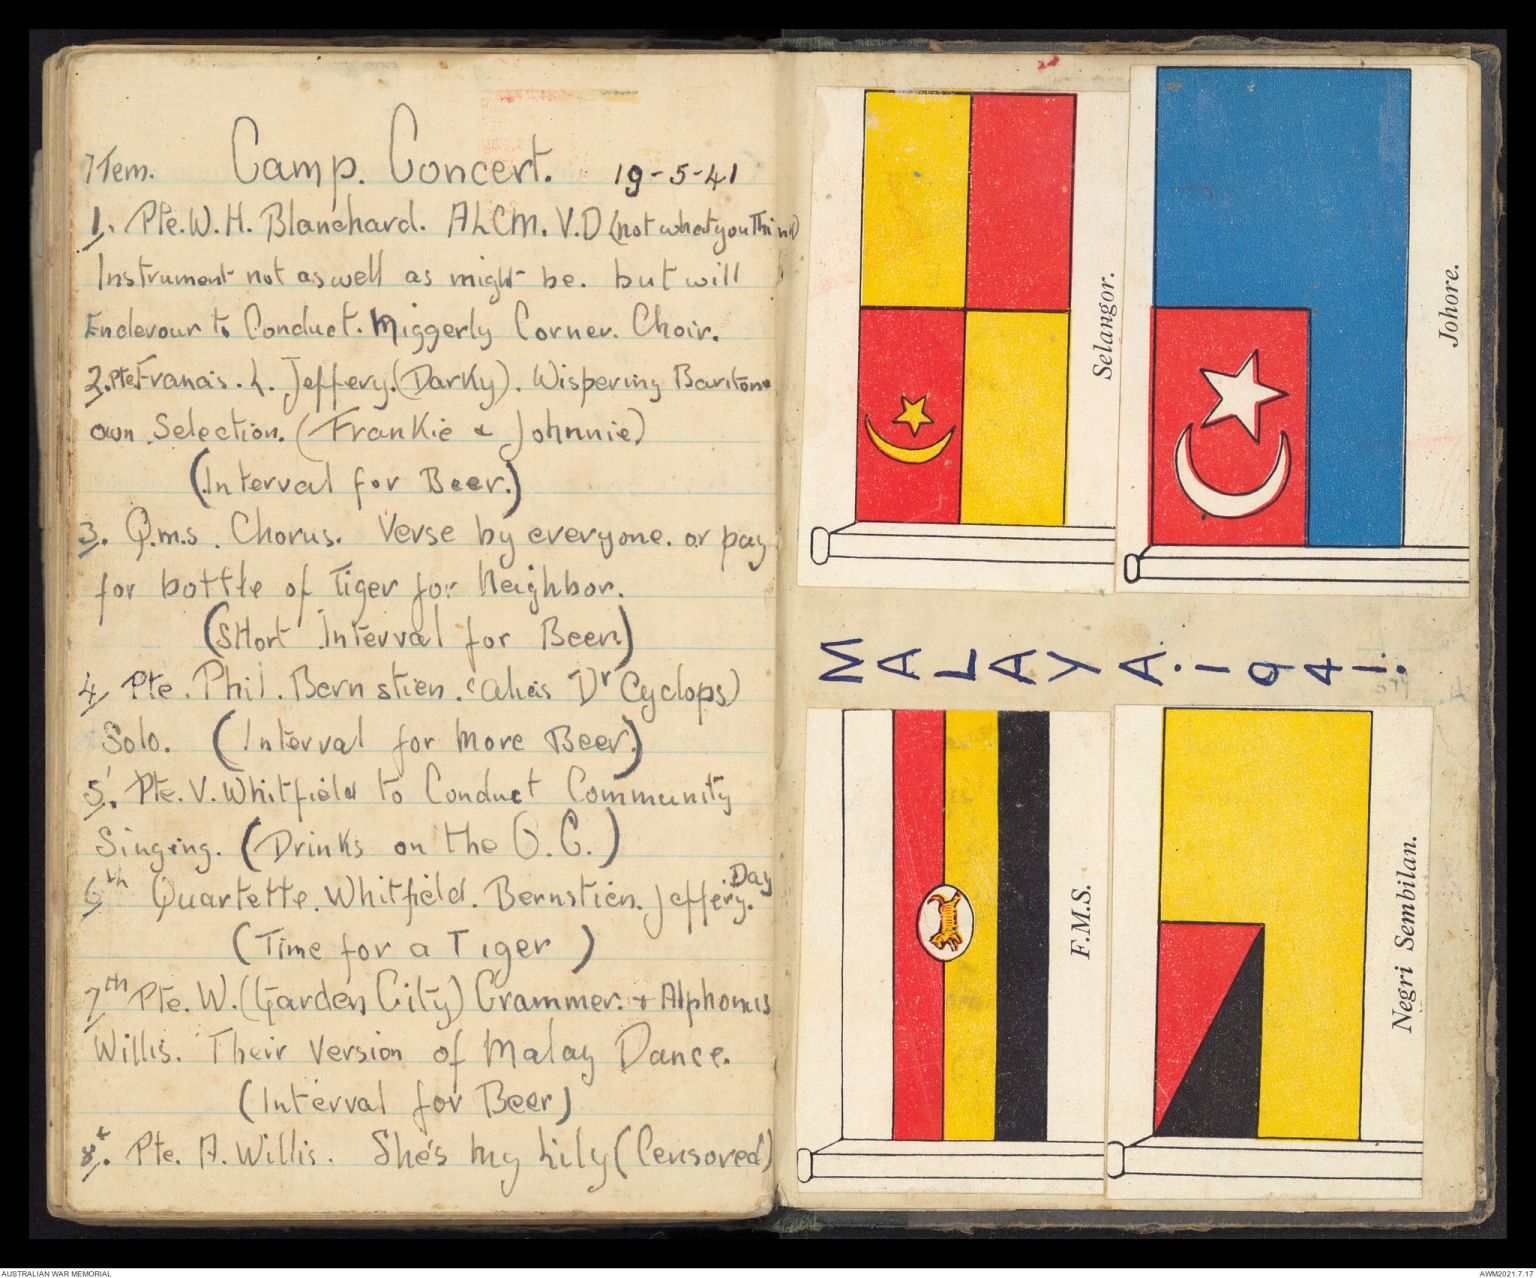 Item. Camp. Concert. 19-5-41
1. Pte. W. H. Blanchard. ALCM. V.D (not what you Think)
Instrument not as well as might be. but will
Endevour to Conduct. Miggerly Corner. Choir.
2. Pte Francis. L. Jeffery. (Darky). Wispering Baritone
own Selection. (Frankie & Johnnie)
(Interval for Beer.)
3. Q.m.s. Chorus. Verse by everyone. or pay
for bottle of Tiger for Neighbor.
(Short Interval for Beer)
4, Pte. Phil. Bernstien. (alias Dr Cyclops)
Solo. (Interval for More Beer)
5. Pte. V. Whitfield to Conduct Community
Singing. (Drinks on the O.C.)
6th Quartette. Whitfield. Bernstien. Jeffery. Day
(Time for a Tiger )
7th Pte. W. (Garden City) Crammer. + Alphonis
Willis. Their Version of Malay Dance.
(Interval for Beer)
8th. Pte. A. Willis. She's My Lily (Censored)
Selangor.
Johore.
MALAYA. 1941.
F.M.S.
Negri Sembilan.
AUSTRALIAN WAR MEMORIAL
AWM2021.7.17